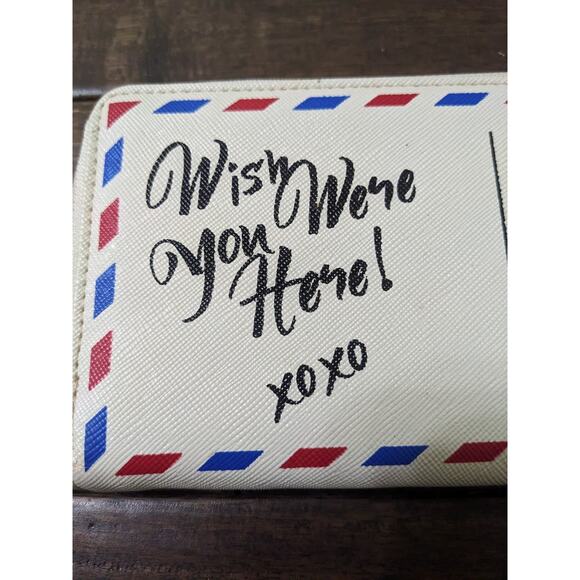 Wish Were
You Here!
xoxo